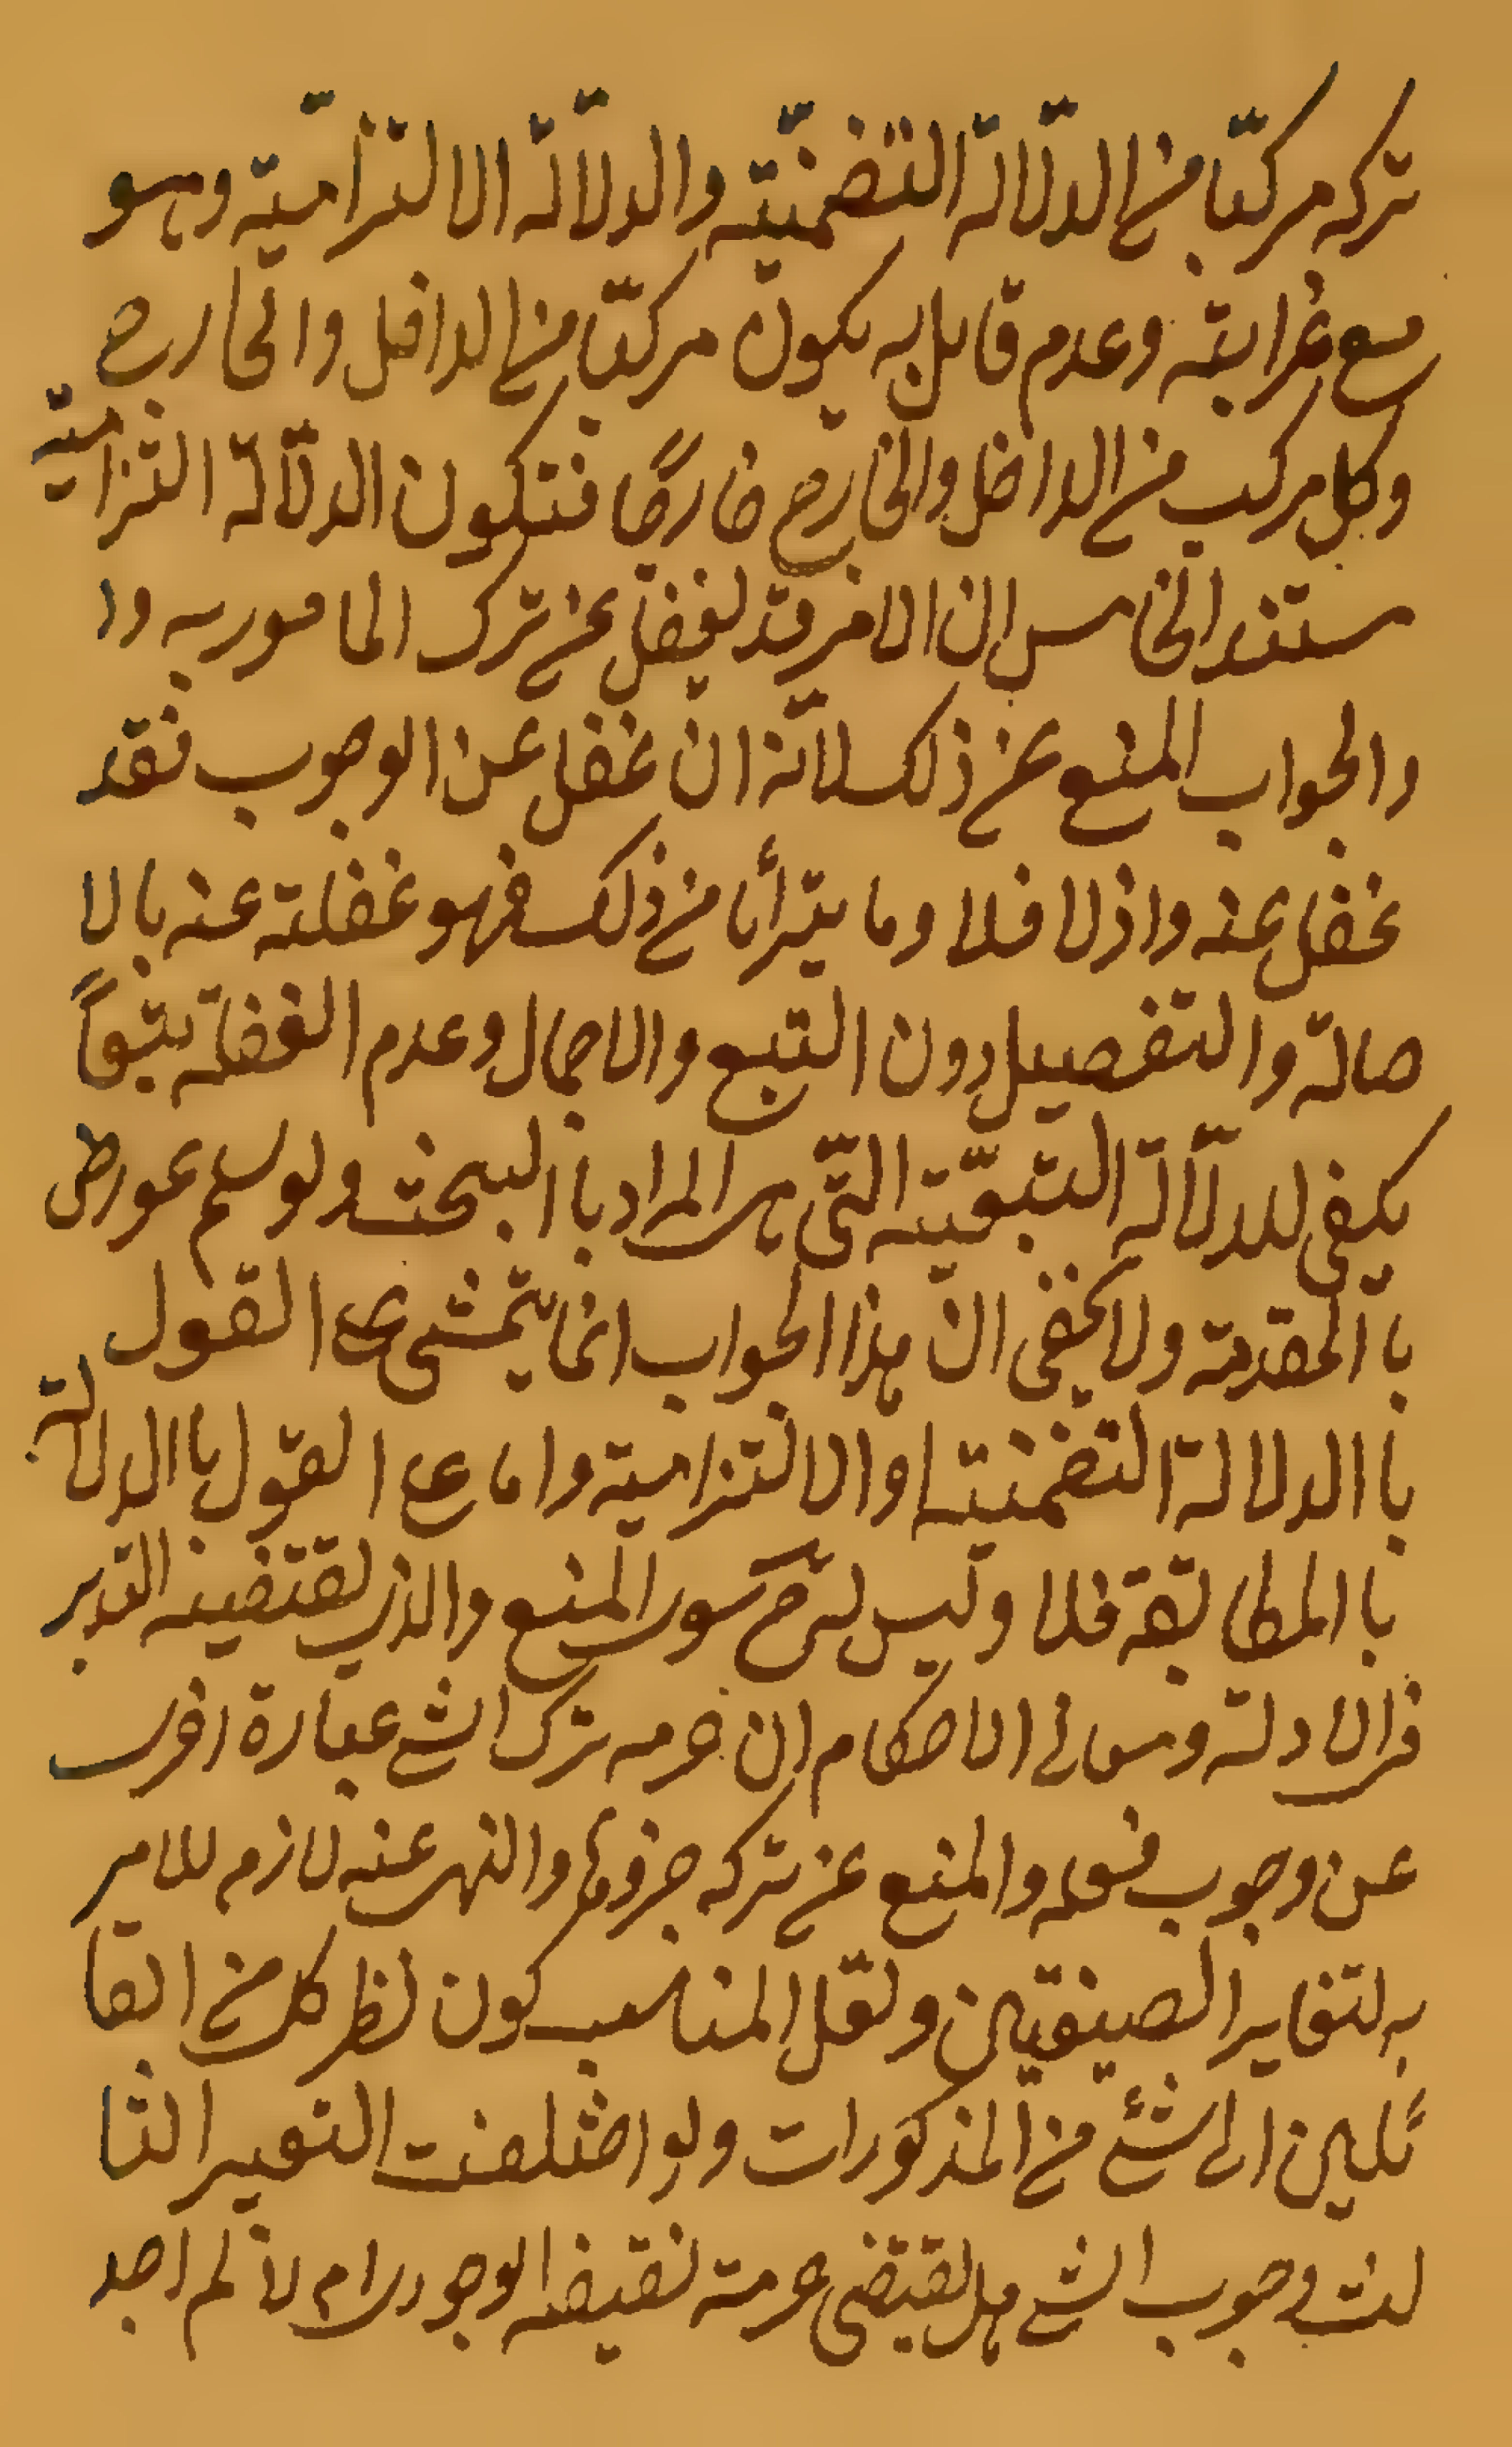 تركه مركبّا من الدلّالة التضمنيّته والدلاّلة الالتزاميّته وهو
مع غرابيته وعدم قايل به يكون مركبّا من الداخل والخارج
وكل مركب من الداخل والخارج خارجًا فتكون الدلّالة التزاميته
مستند الخامس ان الامر قد يغفل عن ترك المامور به وا
والجواب المنع عن ذلك لانّه ان غفل عن الوجوب فقد
غفل عنه واذ لا فلا وما يترأا من ذلك فهو غفلته عنه بالا
صالة والتفصيل دون التبع والاجمال وعدم الغفلة تبعًا
يكفى للدلّالة التبعيّته التّى هى المراد باالبحث ولو سلم عورض
باالمقدمة ولا يخفى ان هذا الجواب انما يتمشى على القول
باالدلالة التضمنيته او الالتزاميته واما على القول باالدلالة
باالمطابقة فلا وليس لترك سوى المنع والذى يقتضيه التدبر
فى الادلة و الاحكام ان حرمه ترك الشئ عبارة اخرى
عن وجوب فعله والمنع عن تركه جزوها والنهى عنه لازم للامر
به لتغاير الصيغتين ولعل المناسب كون نظر كل من القا
ئلين الى شئ من المذكورات ولو اختلفت التعبير الثا
لث وجوب الشئ هل يقتضى حرمته نقيضه الوجودى ام لا لم اجد